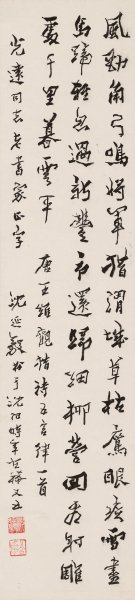 風勁角弓鳴將軍獵渭城草枯鷹眼疾雪盡
馬蹄輕忽過新豐市還歸細柳營回看射雕
處千里暮雲平 唐王維觀獵詩五言律一首
光達同志老書家正字
沈延毅於于沈阳時年